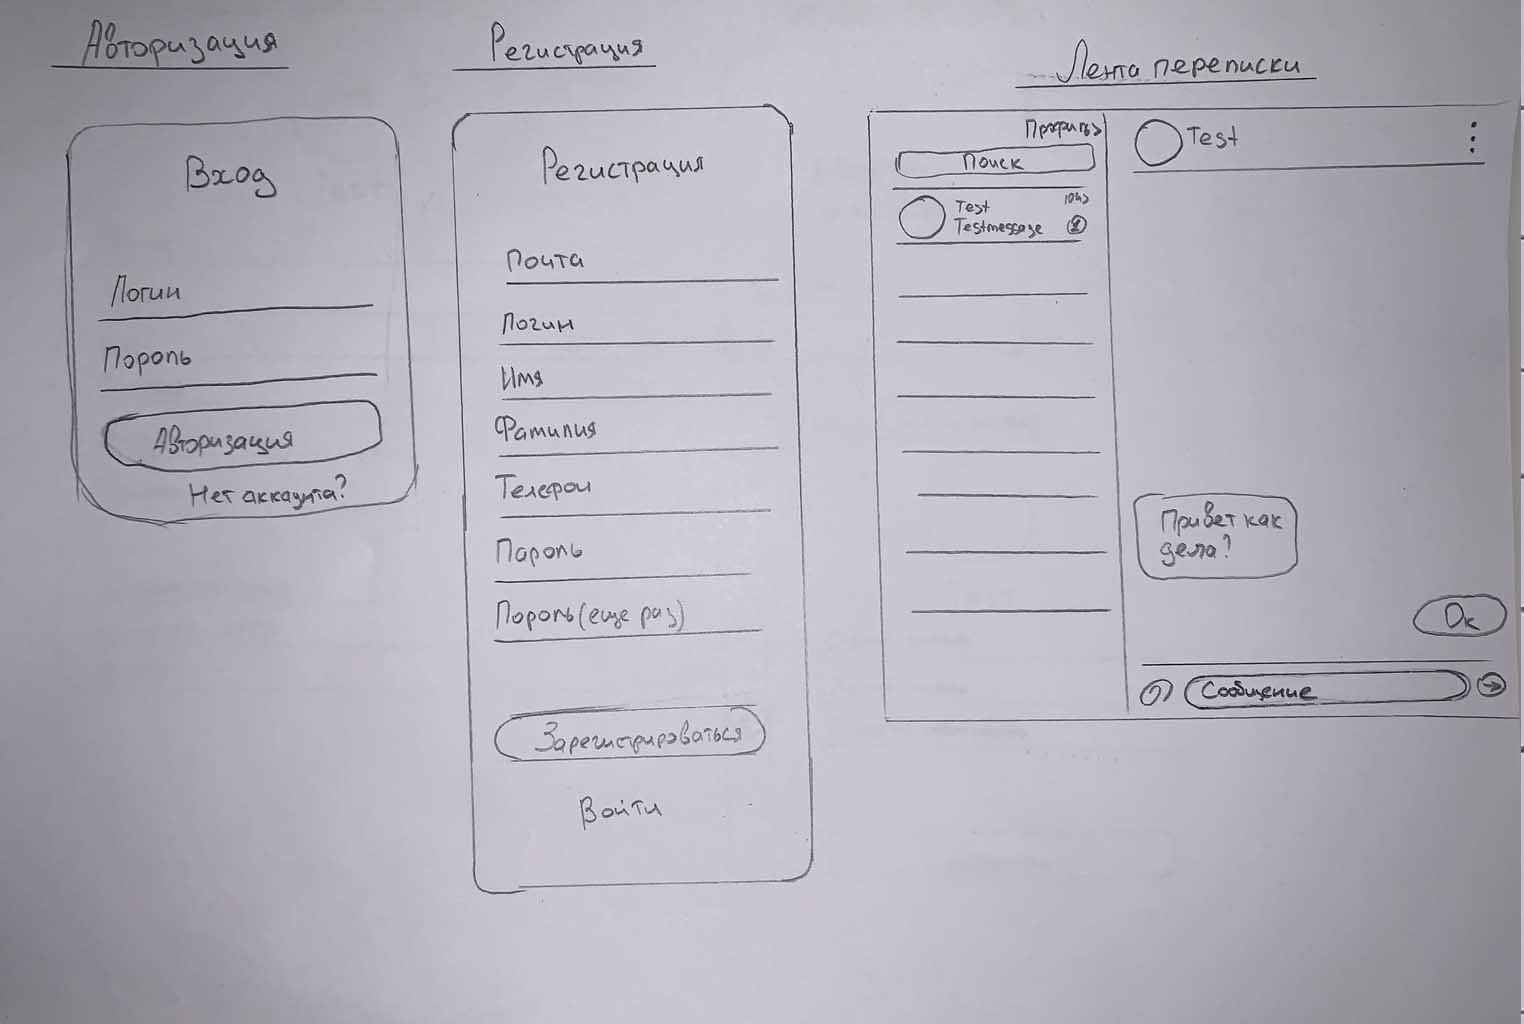 Авторизация
Вход
Логин
Пороль
Авторизация
Нет аккаунта?
Регистрация
Регистрация
Почта
Логин
Имя
Фамилия
Телефон
Пароль
Пороль (еще раз)
Зарегистрироваться
Войти
Лента переписки
Профиль>
Поиск
Test
Testmessage
Test
Привет как
дела?
Ок
Сообщение